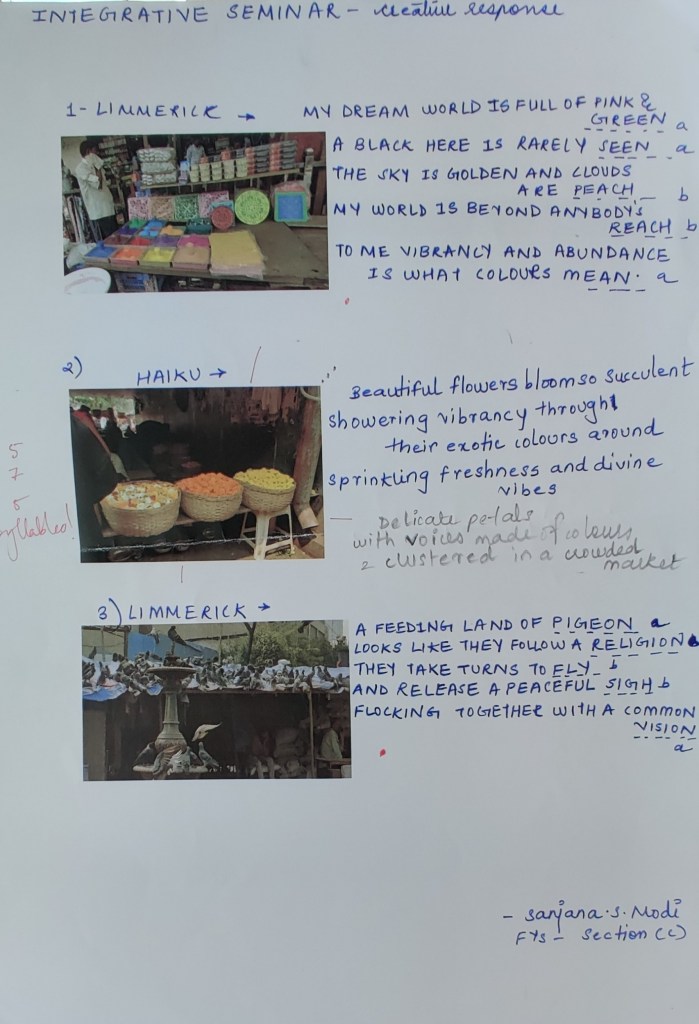 INTEGRATIVE SEMINAR - creative response
1- LIMMERICK →
MY DREAM WORLD IS FULL OF PINK &
GREEN a
A BLACK HERE IS RARELY SEEN a
THE SKY IS GOLDEN AND CLOUDS
ARE PEACH b
MY WORLD IS BEYOND ANYBODY'S
REACH b
TO ME VIBRANCY AND ABUNDANCE
IS WHAT COLOURS MEAN. a
2)
HAIKU →
Beautiful flowers bloom so succulent
showering vibrancy through
their exotic colours around
sprinkling freshness and divine
vibes
5
7
5
syllables!
Delicate petals
with voices made of colours
2 clustered in a crowded
market
3) LIMMERICK →
A FEEDING LAND OF PIGEON a
LOOKS LIKE THEY FOLLOW A RELIGION a
THEY TAKE TURNS TO FLY b
AND RELEASE A PEACEFUL SIGH b
FLOCKING TOGETHER WITH A COMMON
VISION
a
- Sanjana.S.Modi
FYS - Section (C)